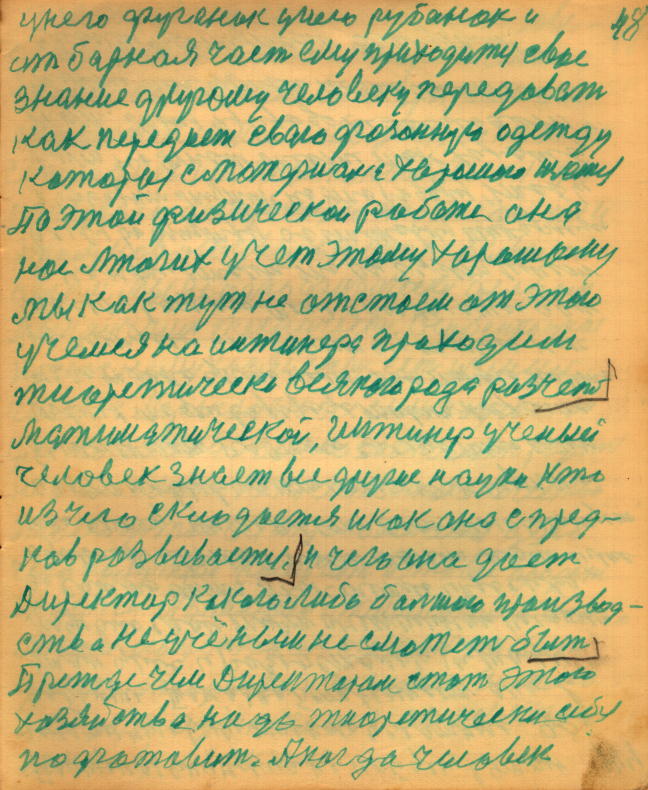 у него фуганок учего рубанок и 48
от барная част ему приходити свое
знание другому человеку передоват
как передает сваю фасонную одежду
которая с материала харошого
По этой физической работе она
нас многих учет этому харошому
мы как тут не отстаем от этого
учемся на интинера проходим
тиаретически всякого рода розчетов
матиматической, Интинер ученый
человек знает все другие науки кто
из чего складается и как она с пред-
ков розвивается, и чего она дает
Директор какого либо балшого производ-
ства не учёным не сможет быт,
Прежде чем Директарам стат этого
хозяйства надо тиоретически себя
подготовит. А когда человек